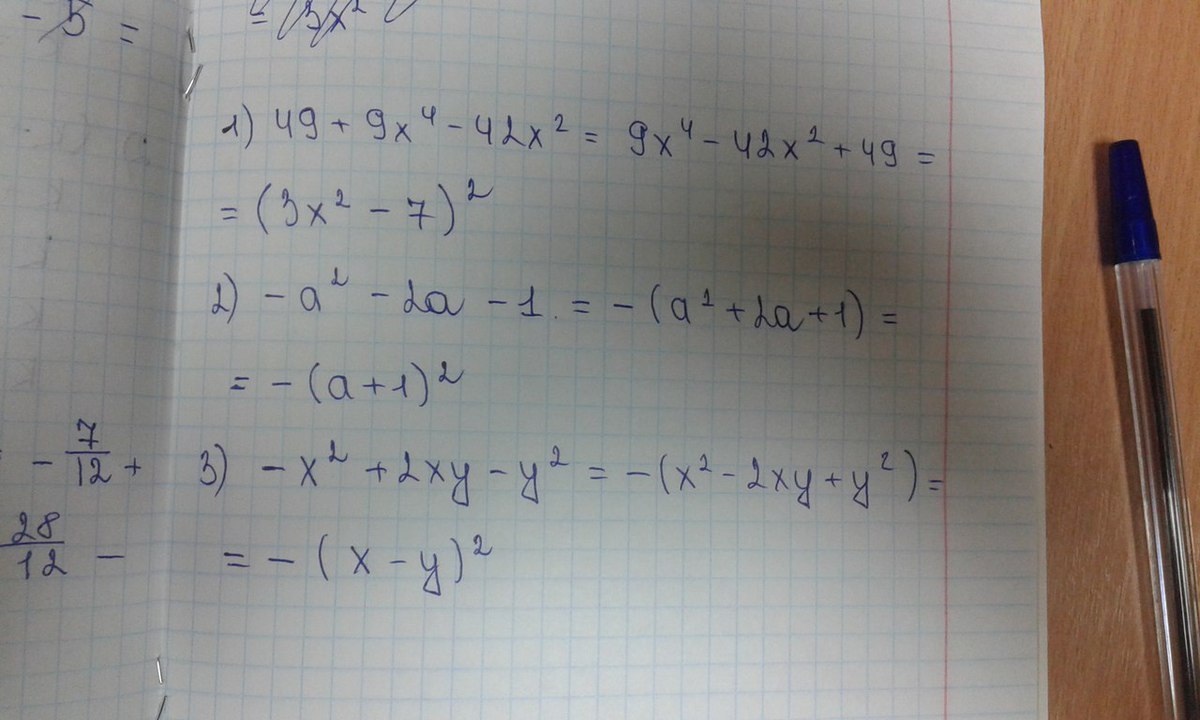 - 5 =
= (3x²
1) 49 + 9x⁴ - 42x² = 9x⁴ - 42x² + 49 =
= (3x² - 7)²
2) - a² - 2a - 1 = - (a² + 2a + 1) =
= - (a + 1)²
- 7/12 +
3) - x² + 2xy - y² = - (x² - 2xy + y²) =
28/12 -
= - (x - y)²